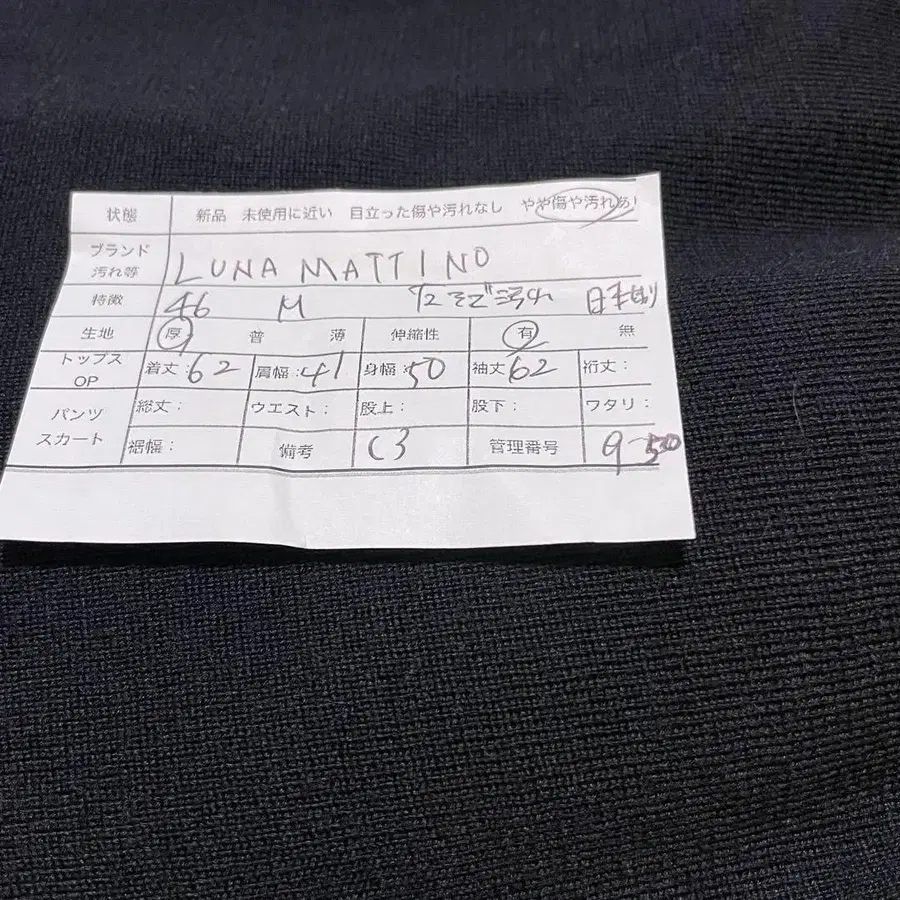 状態 新品 未使用に近い 目立った傷や汚れなし やや傷や汚れあり
ブランド
汚れ等 LUNA MATTINO
特徴 46 M そで汚れ 日本製
生地 厚 普 薄 伸縮性 有 無
トップス
OP 着丈:62 肩幅:41 身幅:50 袖丈62 裄丈:
パンツ
スカート 総丈: ウエスト: 股上: 股下: ワタリ:
裾幅: 備考 C3 管理番号 9-530